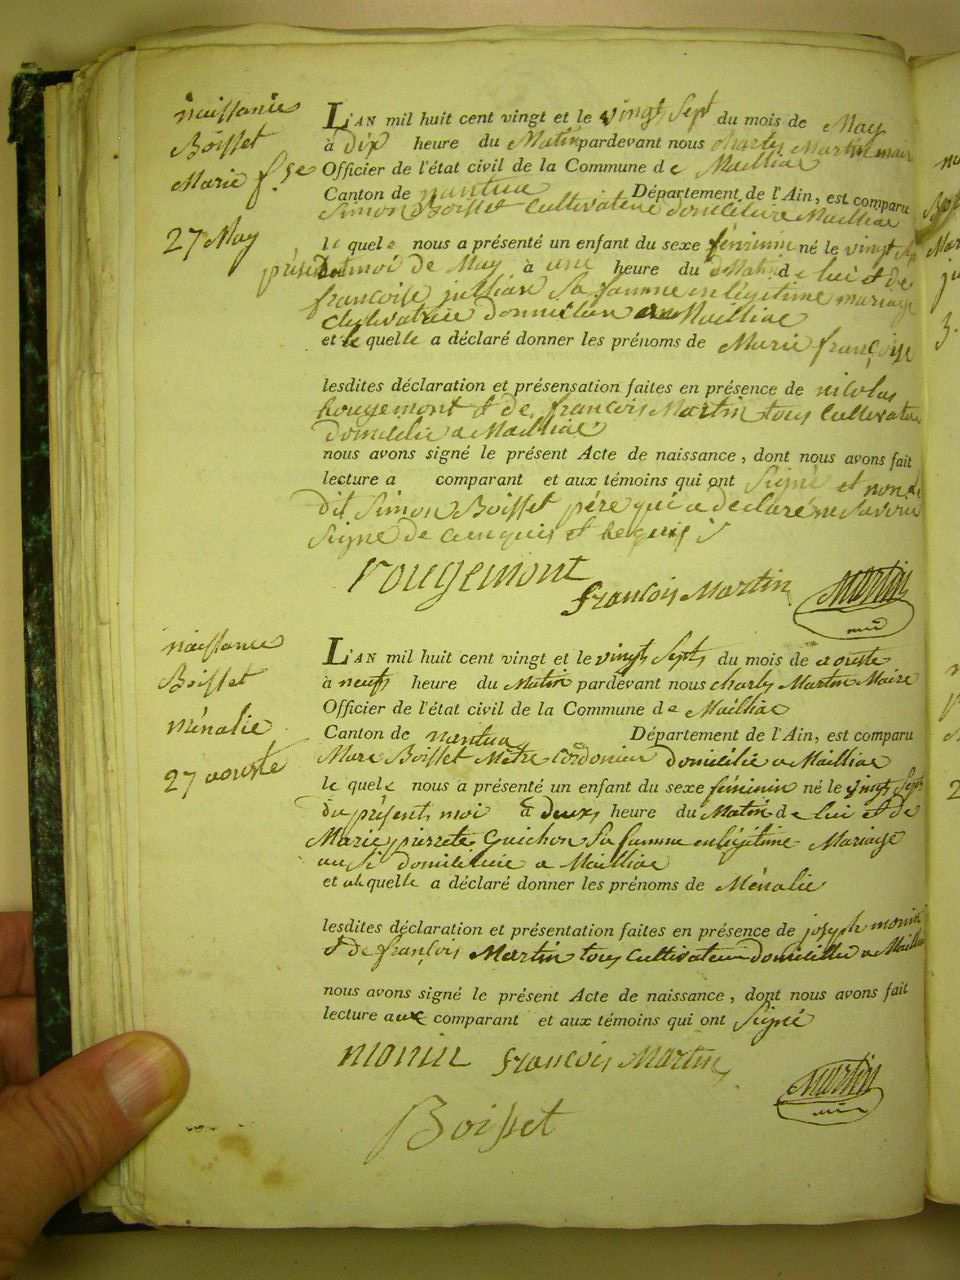 naissance
Boisset
Marie fse
27 May
L'AN mil huit cent vingt et le vingt Sept du mois de May
à dix heure du Matin pardevant nous charly Martin mair
Officier de l'état civil de la Commune de Maëlliac
Canton de nantua Département de l'Ain, est comparu
Simon Boisset Cultivateur domicilié a Mailliac
le quel nous a présenté un enfant du sexe féminin né le vingt Sep
présent moi de May à une heure du Matin de lui et de
francoise jullian Sa famme en légitime mariage
Cultivatrice domicilier a Mailliac
et le quelle a déclaré donner les prénoms de Marie françoise
lesdites déclaration et présensation faites en présence de nicolas
Rougemont & de françois Martin tous Cultivateur
domicilié a Mailliac
nous avons signé le présent Acte de naissance, dont nous avons fait
lecture a comparant et aux témoins qui ont Signé et non le
dit Simon Boisset pére qui a déclaré ne Savoir
Signe de ce enquis et Requis
rougemont
françois Martin
Martin
maire
naissance
Boisset
ménalie
27 aouste
L'AN mil huit cent vingt et le vingt Sept du mois de aouste
à neuf heure du Matin pardevant nous charly Martin Maire
Officier de l'état civil de la Commune de Maëlliac
Canton de nantua Département de l'Ain, est comparu
Marc Boisset Metre Cordonier domicilié a Mailliac
le quel nous a présenté un enfant du sexe féminin né le vingt Sept
du présent moi à deux heure du Matin de lui et de
Marie pierrete Guichon Sa famme en légitime Mariage
ausi domiciliée a Mailliac
et quelle a déclaré donner les prénoms de Ménalie
lesdites déclaration et présentation faites en présence de joseph monin
& de françois Martin tous Cultivateur domicillié a Mailliac
nous avons signé le présent Acte de naissance, dont nous avons fait
lecture aux comparant et aux témoins qui ont Signé
monin françois Martin
Martin
maire
Boisset